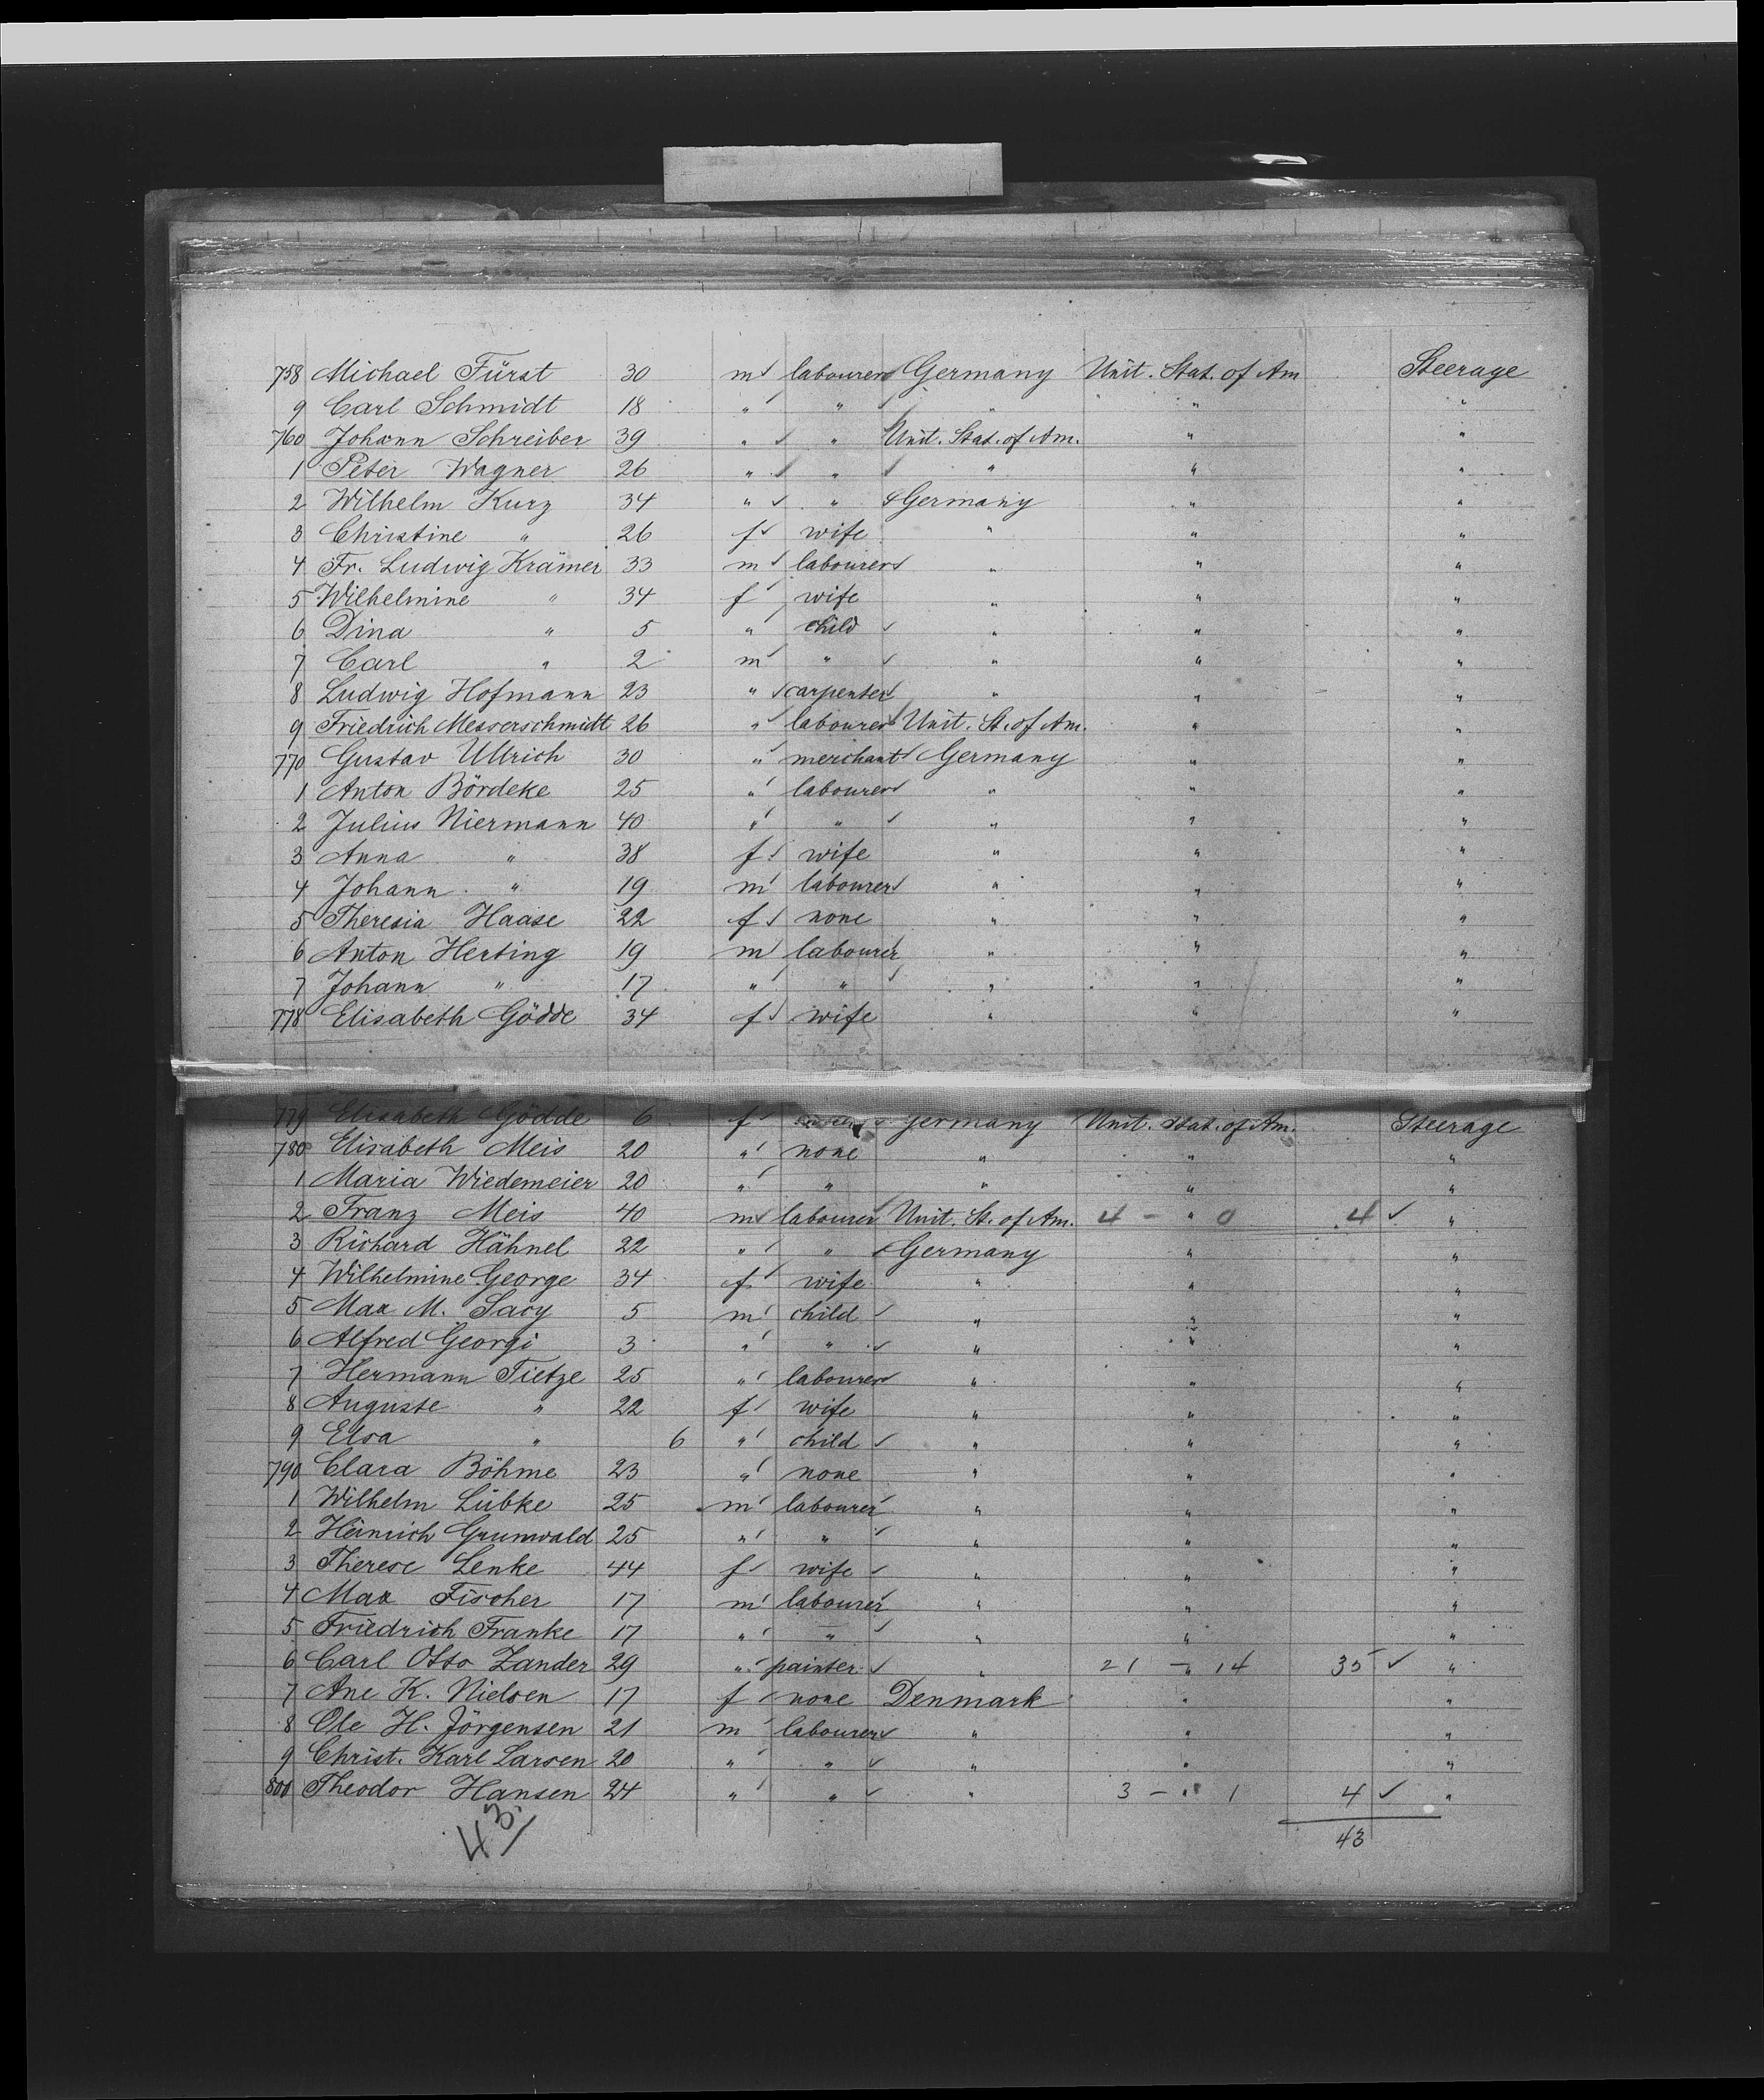 758 Michael Fürst 30 m labourer Germany Unit. Stat. of Am Steerage
9 Carl Schmidt 18 " " " " "
760 Johann Schreiber 39 " " Unit. Stat. of Am. " "
1 Peter Wagner 26 " " " " "
2 Wilhelm Kurz 34 " " Germany " "
3 Christine " 26 f wife " " "
4 Fr. Ludwig Krämer 33 m labourer " " "
5 Wilhelmine " 34 f wife " " "
6 Dina " 5 " child " " "
7 Carl " 2 m " " " "
8 Ludwig Hofmann 23 " carpenter " " "
9 Friedrich Messerschmidt 26 " labourer Unit. St. of Am. " "
770 Gustav Ullrich 30 " merchant Germany " "
1 Anton Bördeke 25 " labourer " " "
2 Julius Niermann 40 " " " " "
3 Anna " 38 f wife " " "
4 Johann " 19 m labourer " " "
5 Theresia Haase 22 f none " " "
6 Anton Herting 19 m labourer " " "
7 Johann " 17 " " " " "
778 Elisabeth Gödde 34 f wife " " "
779 Elisabeth Gödde 6 f Germany Unit. Stat. of Am. Steerage
780 Elisabeth Meis 20 " none " " "
1 Maria Wiedemeier 20 " " " " "
2 Franz Meis 40 m labourer Unit. St. of Am. 4 - " 0 4 ✓ "
3 Richard Hähnel 22 " " Germany " "
4 Wilhelmine George 34 f wife " " "
5 Max M. Sacy 5 m child " " "
6 Alfred Georgi 3 " " " " "
7 Hermann Tietze 25 " labourer " " "
8 Auguste " 22 f wife " " "
9 Elsa " 6 " child " " "
790 Clara Böhme 23 " none " " "
1 Wilhelm Lübke 25 m labourer " " "
2 Heinrich Grunwald 25 " " " " "
3 Therese Lenke 44 f wife " " "
4 Max Fischer 17 m labourer " " "
5 Friedrich Franke 17 " " " " "
6 Carl Otto Zander 29 " painter " 21 - " 14 35 ✓ "
7 Ane K. Nielsen 17 f none Denmark " "
8 Ole H. Jörgensen 21 m labourer " " "
9 Christ. Karl Larsen 20 " " " " "
800 Theodor Hansen 24 " " " 3 - " 1 4 ✓ "
43
43